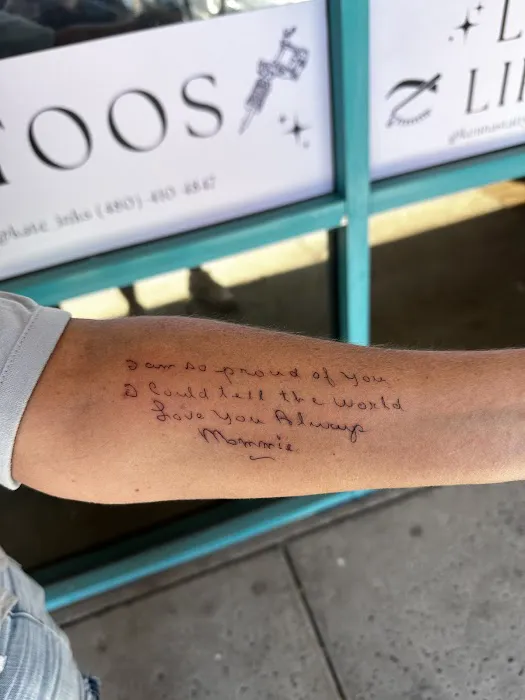 TOOS
@kate_inks (480)-410-4847
L
LI
I am so proud of you
I Could tell the World
Love You Always
Mommie